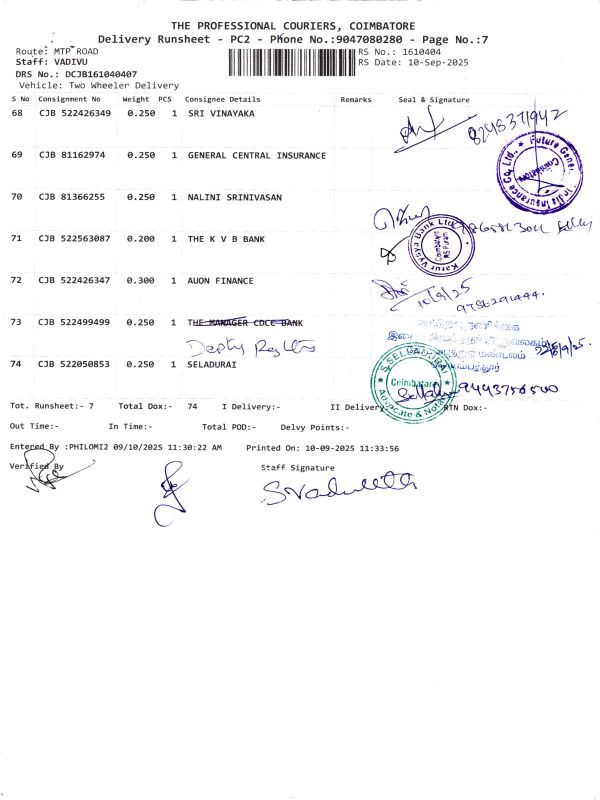 THE PROFESSIONAL COURIERS, COIMBATORE
Delivery Runsheet - PC2 - Phone No.:9047080280 - Page No.:7
Route: MTP ROAD
RS No.: 1610404
Staff: VADIVU
RS Date: 10-Sep-2025
DRS No.: DCJB161040407
Vehicle: Two Wheeler Delivery
S No Consignment No Weight PCS Consignee Details Remarks Seal & Signature
68 CJB 522426349 0.250 1 SRI VINAYAKA
8248371942
69 CJB 81162974 0.250 1 GENERAL CENTRAL INSURANCE
Future Gener India Insurance Co. Ltd.
70 CJB 81366255 0.250 1 NALINI SRINIVASAN
71 CJB 522563087 0.200 1 THE K V B BANK
Karur Vysya Bank Ltd
Coimbatore
RS Puram
72 CJB 522426347 0.300 1 AUON FINANCE
10/9/25
9786291444.
73 CJB 522499499 0.250 1 THE MANAGER CDCC BANK
74 CJB 522050853 0.250 1 SELADURAI
S.SELBADURAI
Coimbatore
Advocate & Notary
9443756500
Tot. Runsheet:- 7 Total Dox:- 74 I Delivery:- II Delivery:- RTN Dox:-
Out Time:- In Time:- Total POD:- Delvy Points:-
Entered By :PHILOMI2 09/10/2025 11:30:22 AM Printed On: 10-09-2025 11:33:56
Verified By
Staff Signature